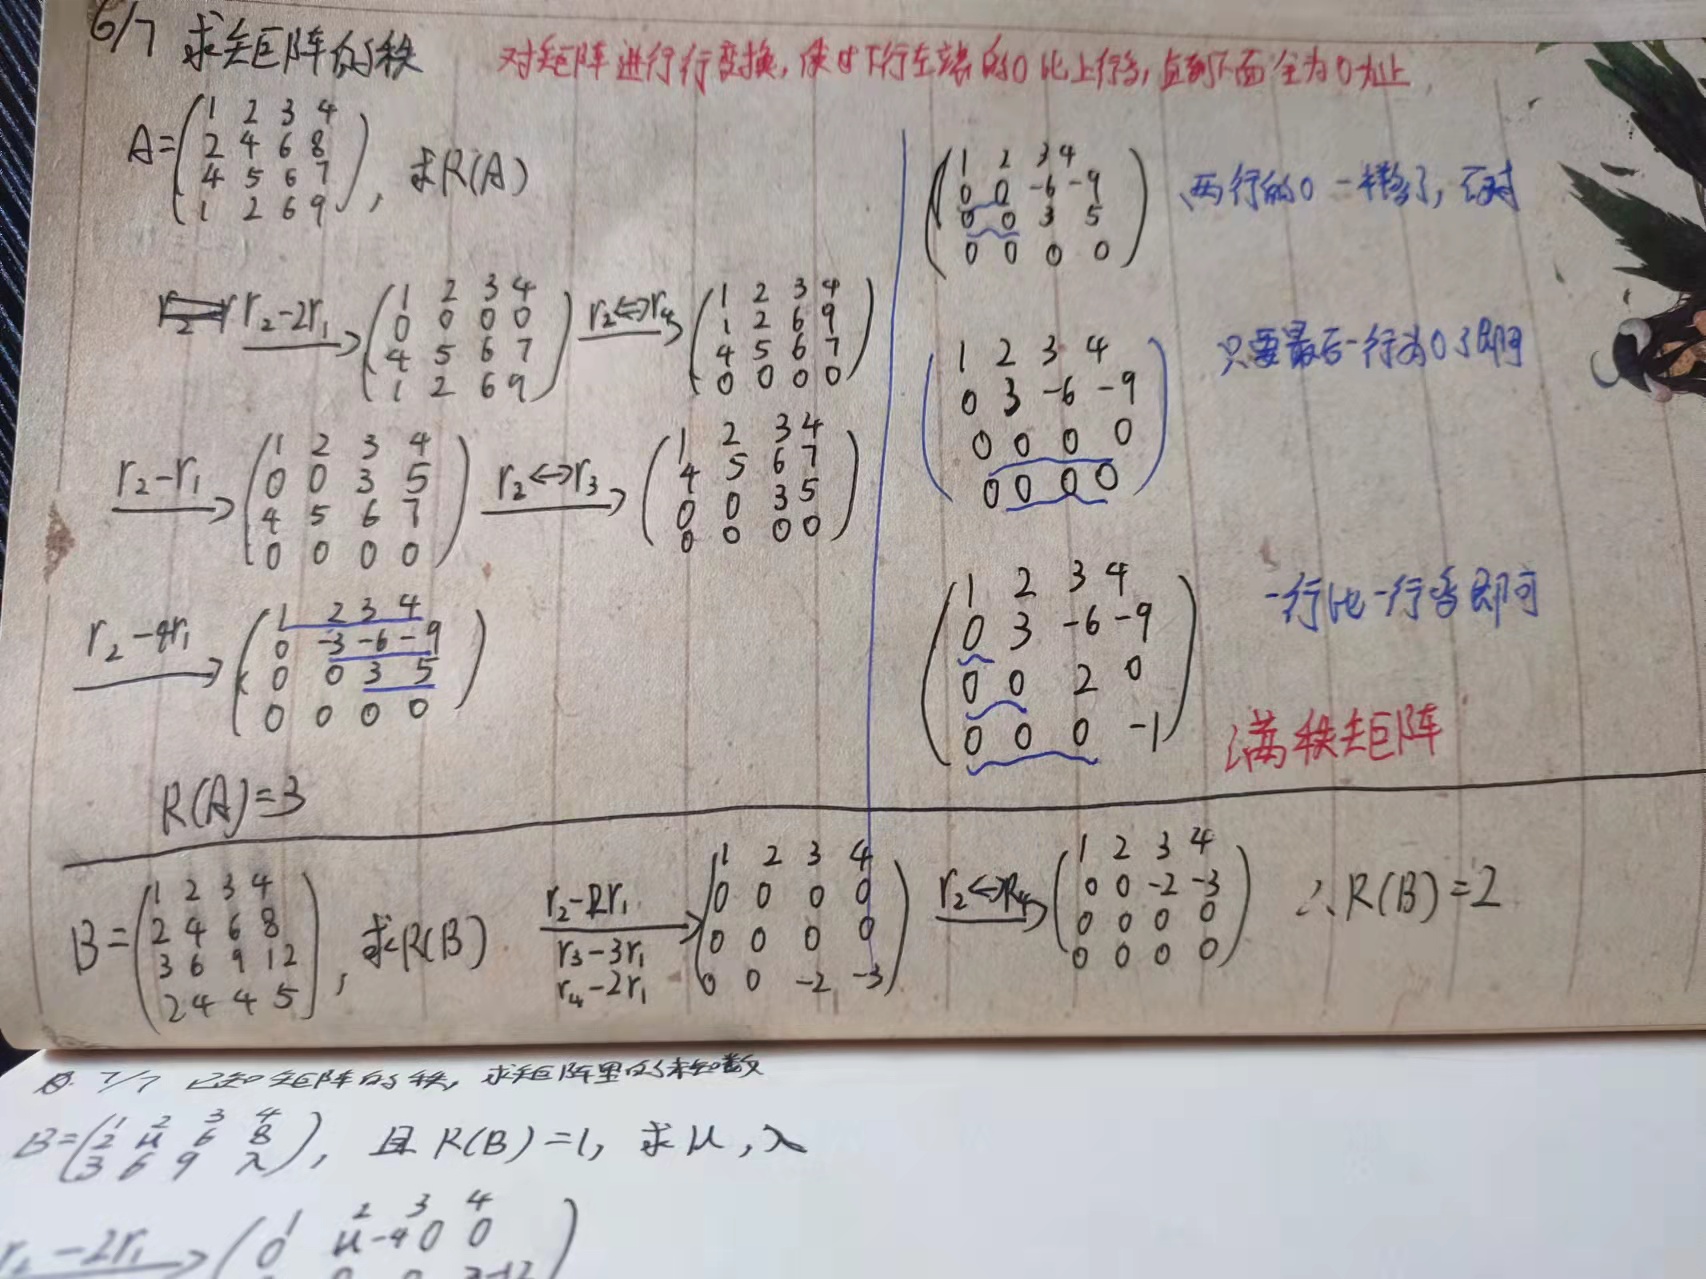 6/7 求矩阵的秩
对矩阵进行行变换,使得下行左端的0比上行多,直到下面全为0为止.
A=(1 2 3 4
2 4 6 8
4 5 6 7
1 2 6 9), 求R(A)
r₂-2r₁ → (1 2 3 4
0 0 0 0
4 5 6 7
1 2 6 9)
r₂↔r₄ → (1 2 3 4
1 2 6 9
4 5 6 7
0 0 0 0)
r₂-r₁ → (1 2 3 4
0 0 3 5
4 5 6 7
0 0 0 0)
r₂↔r₃ → (1 2 3 4
4 5 6 7
0 0 3 5
0 0 0 0)
r₂-4r₁ → (1 2 3 4
0 -3 -6 -9
0 0 3 5
0 0 0 0)
R(A)=3
(1 2 3 4
0 0 -6 -9
0 0 3 5
0 0 0 0)
两行的0一样多了,不对
(1 2 3 4
0 3 -6 -9
0 0 0 0
0 0 0 0)
只要最后一行为0了即可
(1 2 3 4
0 3 -6 -9
0 0 2 0
0 0 0 -1)
一行比一行多即可
满秩矩阵
B=(1 2 3 4
2 4 6 8
3 6 9 12
2 4 4 5), 求R(B)
r₂-2r₁
r₃-3r₁
r₄-2r₁
→ (1 2 3 4
0 0 0 0
0 0 0 0
0 0 -2 -3)
r₂↔R₄ → (1 2 3 4
0 0 -2 -3
0 0 0 0
0 0 0 0)
∴R(B)=2
7/7 已知矩阵的秩,求矩阵里的未知数
B=(1 2 3 4
2 μ 6 8
3 6 9 λ), 且R(B)=1, 求μ,λ
r₂-2r₁ → (1 2 3 4
0 μ-4 0 0